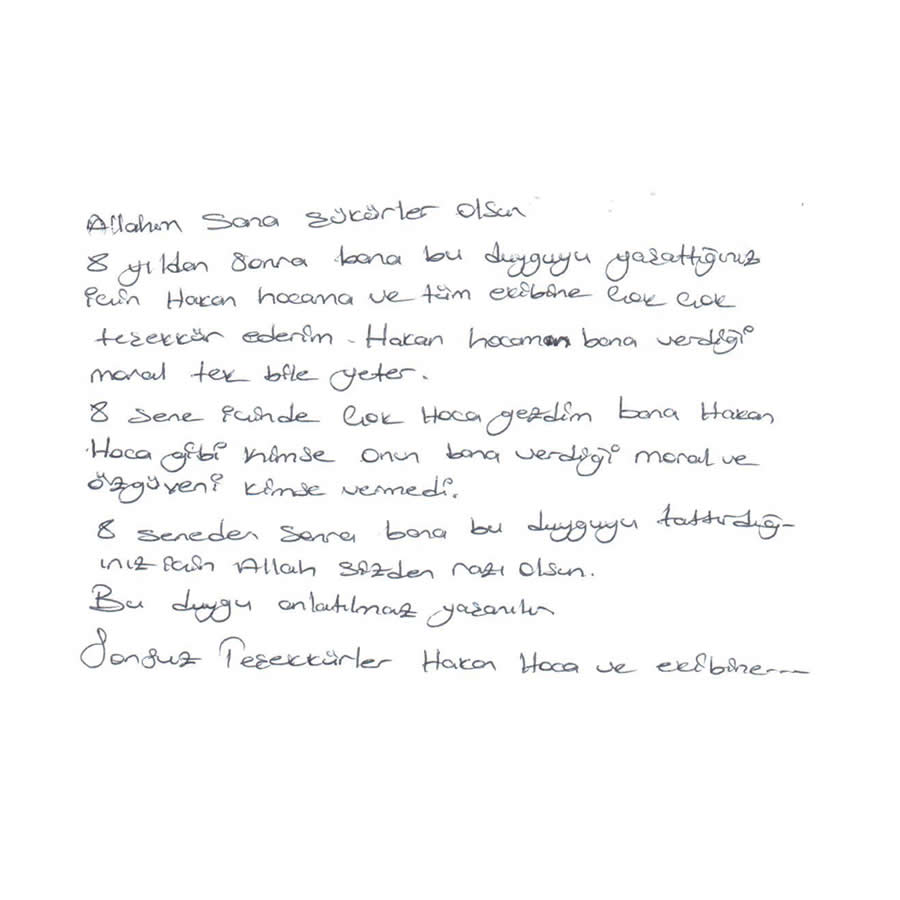 Allahım Sana şükürler olsun
8 yıldan sonra bana bu duyguyu yaşattığınız
için Hakan hocama ve tüm ekibine çok çok
teşekkür ederim. Hakan hocamın bana verdiği
moral tek bile yeter.
8 sene içinde çok Hoca gezdim bana Hakan
Hoca gibi kimse onun bana verdiği moral ve
özgüveni kimse vermedi.
8 seneden sonra bana bu duyguyu tattırdığ-
ınız için Allah sizden razı olsun.
Bu duygu anlatılmaz yaşanılır
Sonsuz Teşekkürler Hakan Hoca ve ekibine----